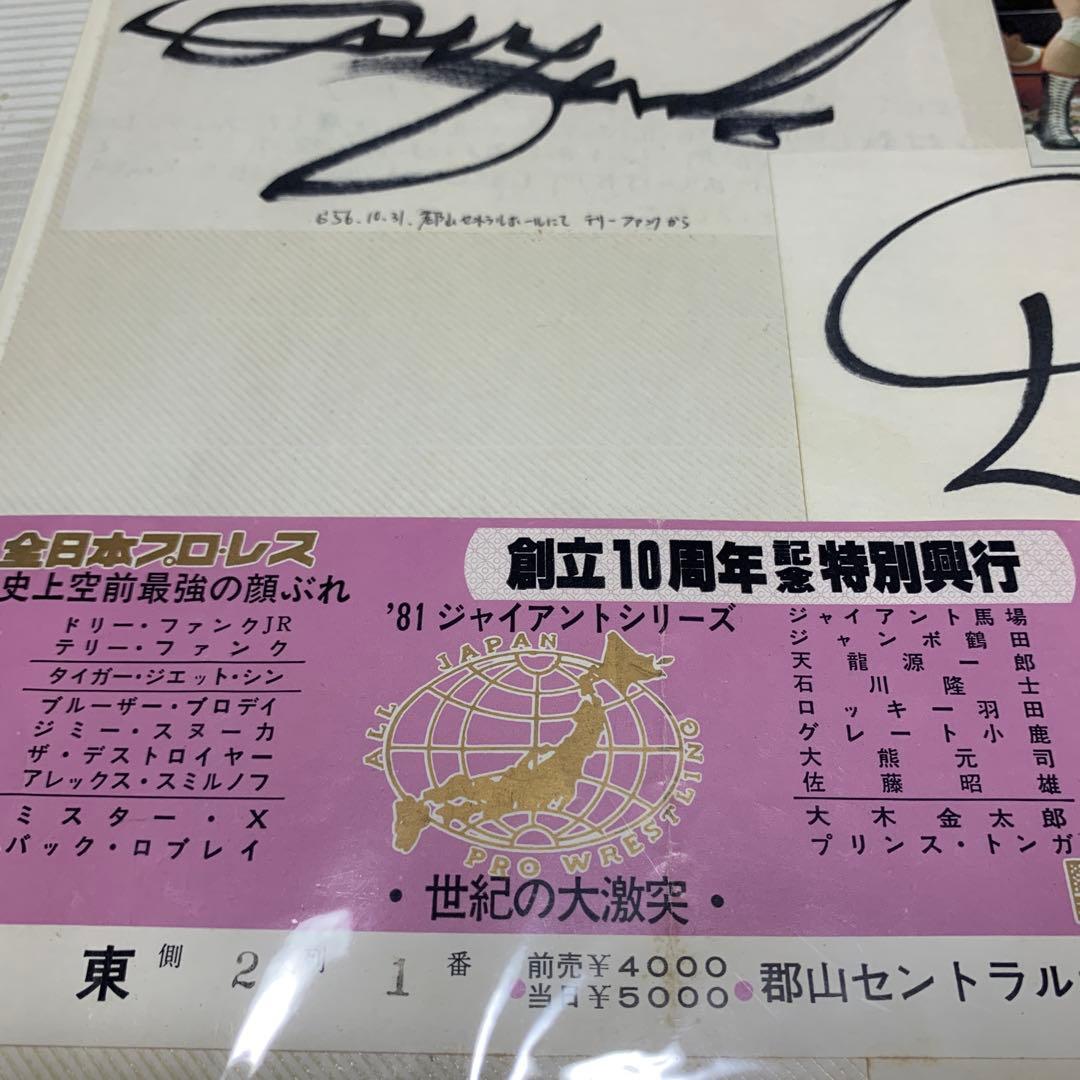 S56.10.31. 郡山セントラルホールにて テリーファンクから
全日本プロ・レス
史上空前最強の顔ぶれ
ドリー・ファンクJR
テリー・ファンク
タイガー・ジエット・シン
ブルーザー・ブロデイ
ジミー・スヌーカ
ザ・デストロイヤー
アレックス・スミルノフ
ミスター・X
バック・ロブレイ
創立10周年記念特別興行
'81ジャイアントシリーズ
ALL JAPAN PRO WRESTLING
・世紀の大激突・
ジャイアント馬場
ジャンボ鶴田
天龍源一郎
石川隆士
ロッキー羽田
グレート小鹿
大熊元司
佐藤昭雄
大木金太郎
プリンス・トンガ
東側 2列 1番
前売¥4000
当日¥5000
郡山セントラル